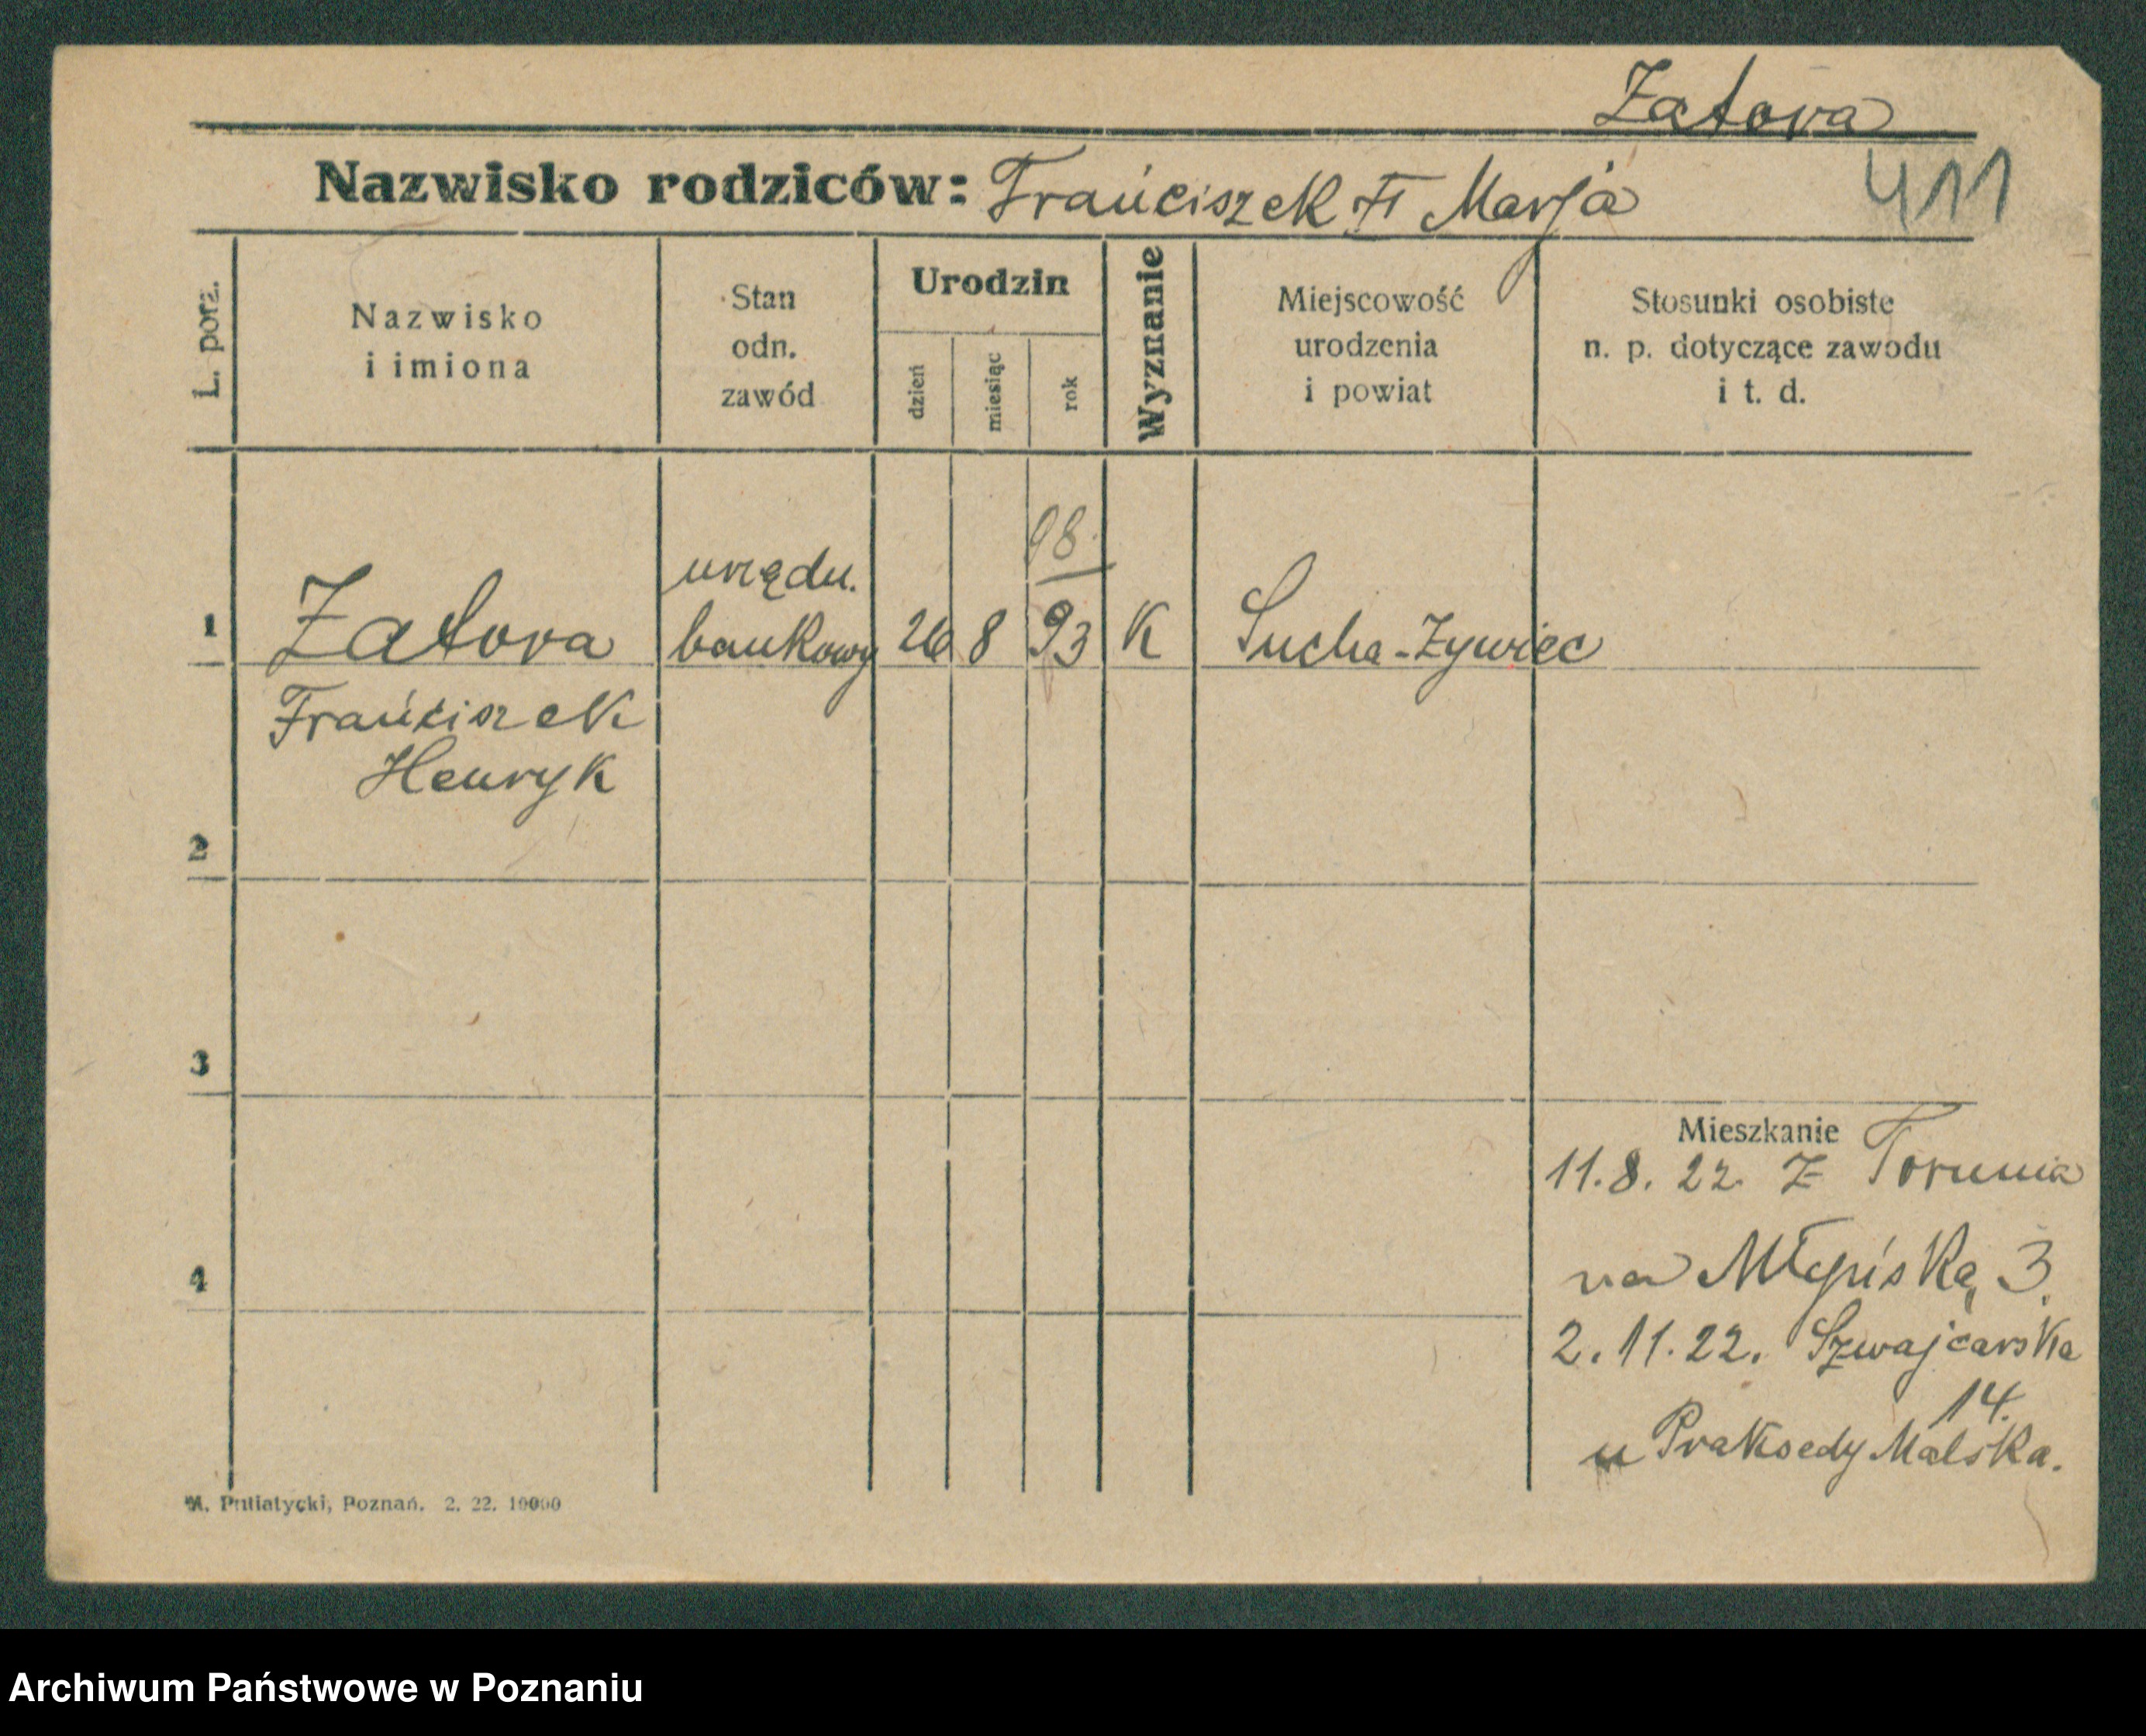 Zatora
Nazwisko rodziców: Franciszek Marja
411
L. porz.
Nazwisko
i imiona
Stan
odn.
zawód
Urodzin
dzień
miesiąc
rok
Wyznanie
Miejscowość
urodzenia
i powiat
Stosunki osobiste
n. p. dotyczące zawodu
i t. d.
98.
urzędn.
1 Zatora bankowy 26 8 93 K Sucha-Zywiec
Franciszek
Henryk
2
3
Mieszkanie
11.8.22. Z Torunia
na 3.
4
2.11.22. Szwajcarska
14.
u Praksedy Malska.
Poznań. 2. 22. 10000
Archiwum Państwowe w Poznaniu